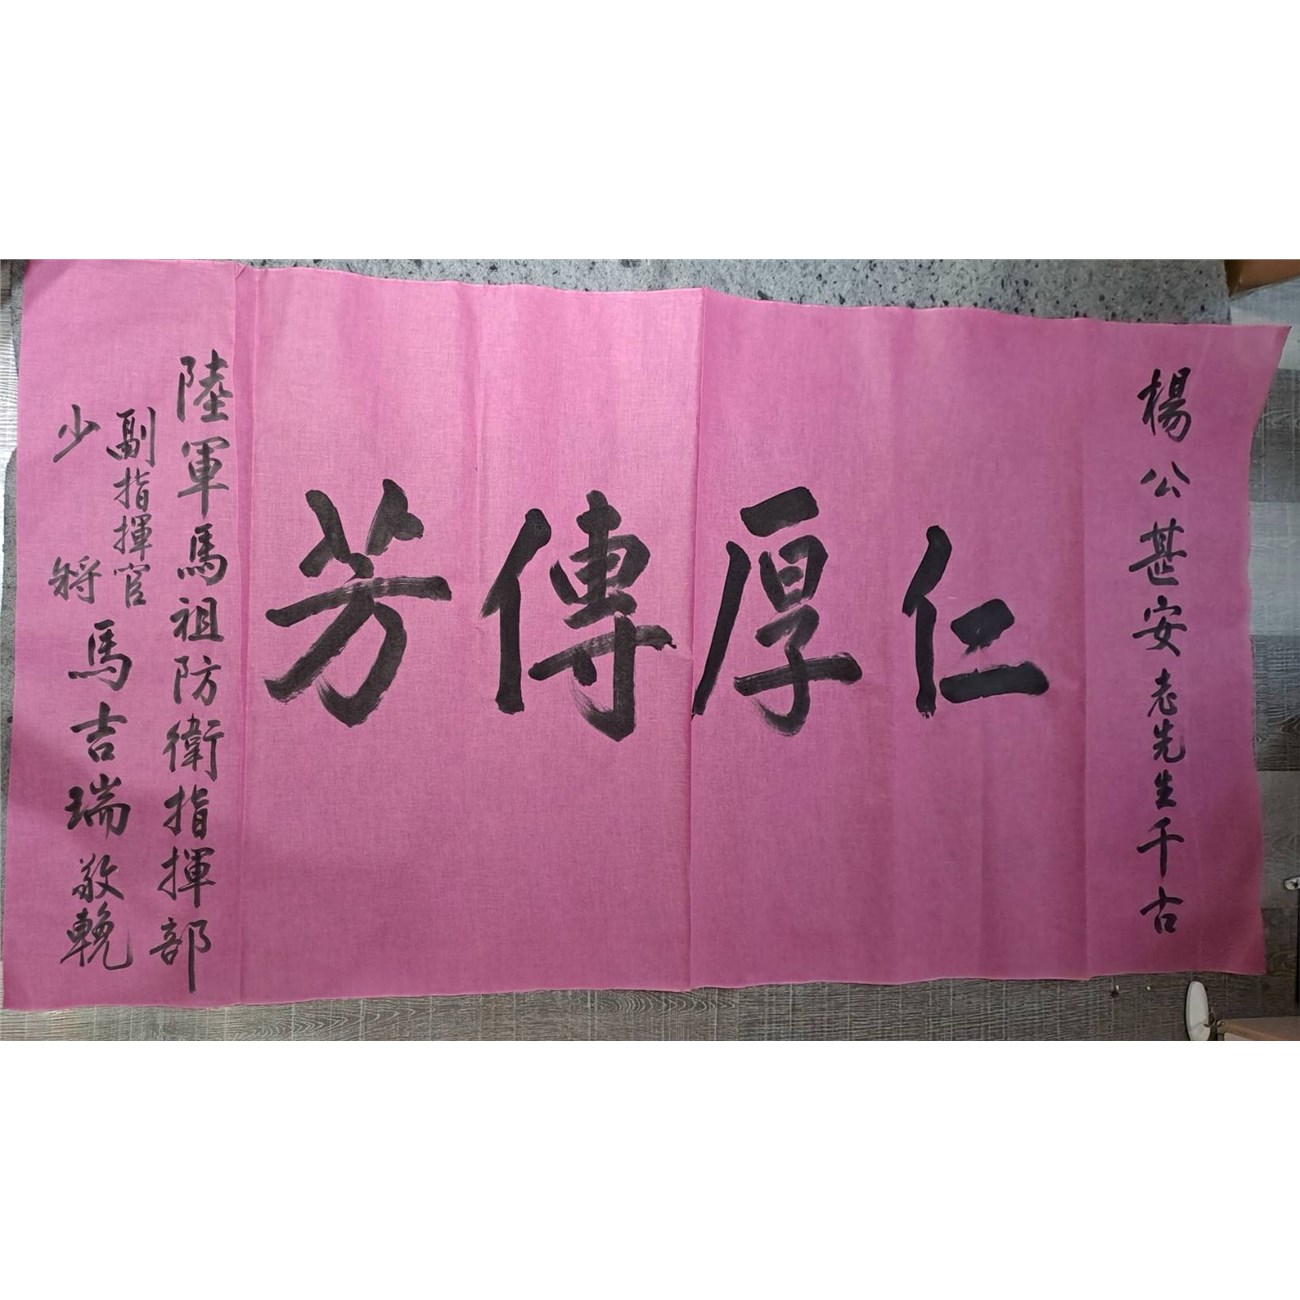 楊公甚安老先生千古
仁厚傳芳
陸軍馬祖防衛指揮部
副指揮官
少將
馬吉瑞敬輓